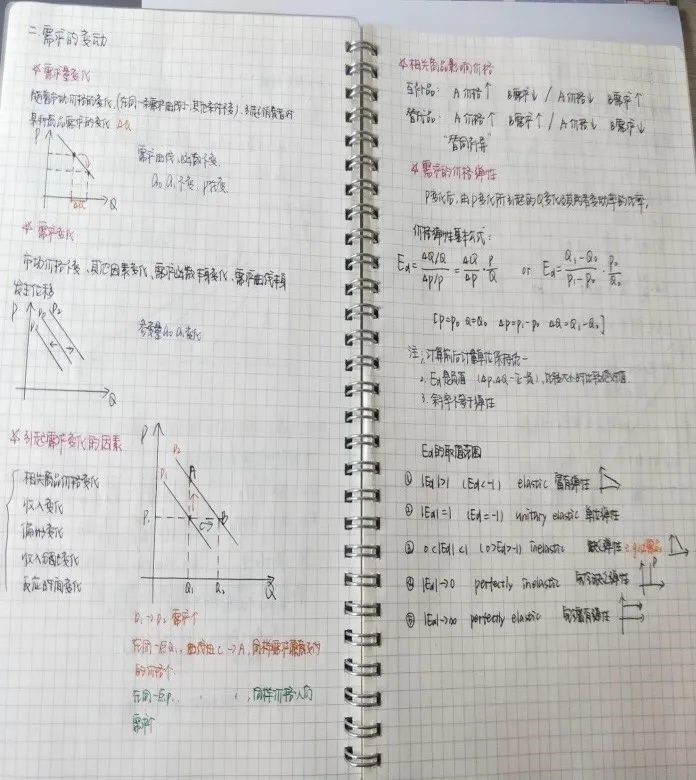 二.需求的变动
☆需求量变化
随着市场价格的变化,(在同一条需求曲线上,其他条件不变),引起消费者对
某种商品需求的变化 ΔQ
P
需求曲线、函数不变
a₀ a₁ 不变 P改变
ΔQ
Q
☆需求变化
市场价格不变、其他因素变化、需求函数本身变化、需求曲线本身
发生位移
P
参变量 a₀ a₁变化
Q
☆引起需求变化的因素
相关商品价格变化
收入变化
偏好变化
收入分配变化
反应时间变化
P
D₂
D₁
A
P₁
C
B
Q₁
Q₂
Q
D₁→D₂ 需求↑
在同一点Q₁, 曲线由C→A, 同样需求
的价格↑
在同一点P₁ , 同样价格人们
需求↑
☆相关商品影响价格
互补品: A价格↑ B需求↓ / A价格↓ B需求↑
替代品: A价格↑ B需求↑ / A价格↓ B需求↓
"替同
☆需求的价格弹性
P变化后,由P变化所引起的Q变化
价格弹性基本公式:
Ed = ΔQ/Q / ΔP/P = ΔQ/ΔP · P/Q or Ed = Q₁-Q₀ / P₁-P₀ · P₀/Q₀
[P=P₀ Q=Q₀ ΔP=P₁-P₀ ΔQ=Q₁-Q₀]
注:1.计算前后计量单位保持统一
2. Ed是负值 (ΔP.ΔQ一正一负), 比较大小时比较绝对值
3. 斜率不等于弹性
Ed的取值范围
① |Ed|>1 (Ed<-1) elastic 富有弹性
② |Ed|=1 (Ed=-1) unitary elastic 单位弹性
③ 0<|Ed|<1 (0>Ed>-1) inelastic 缺乏弹性
④ |Ed|→0 perfectly inelastic 完全缺乏弹性
⑤ |Ed|→∞ perfectly elastic 完全富有弹性